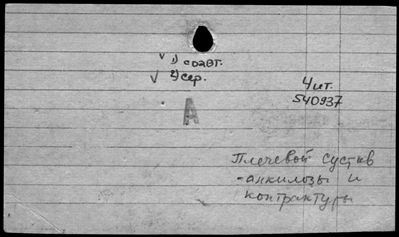 √ 1) соавт.
√ 2) сер.
Чит.
540937
А
Плечевой сустав
-анкилозы и
контрактуры